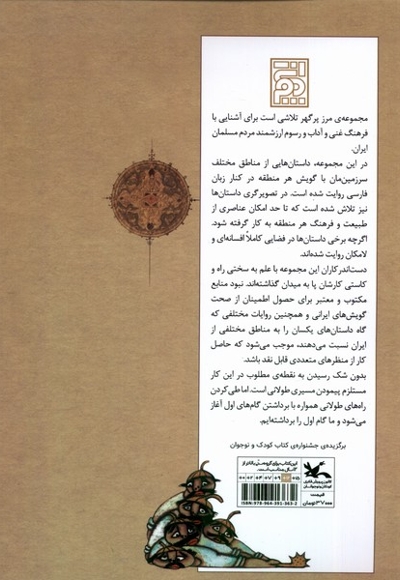 مجموعه‌ی مرز پرگهر تلاشی است برای آشنایی با
فرهنگ غنی و آداب و رسوم ارزشمند مردم مسلمان
ایران.
در این مجموعه، داستان‌هایی از مناطق مختلف
سرزمین‌مان با گویش هر منطقه در کنار زبان
فارسی روایت شده است. در تصویرگری داستان‌ها
نیز تلاش شده است که تا حد امکان عناصری از
طبیعت و فرهنگ هر منطقه به کار گرفته شود.
اگرچه برخی داستان‌ها در فضایی کاملاً افسانه‌ای و
لامکان روایت شده‌اند.
دست‌اندرکاران این مجموعه با علم به سختی راه و
کاستی کارشان پا به میدان گذاشته‌اند. نبود منابع
مکتوب و معتبر برای حصول اطمینان از صحت
گویش‌های ایرانی و همچنین روایات مختلفی که
گاه داستان‌های یکسان را به مناطق مختلفی از
ایران نسبت می‌دهند، موجب می‌شود که حاصل
کار از منظرهای متعددی قابل نقد باشد.
بدون شک رسیدن به نقطه‌ی مطلوب در این کار
مستلزم پیمودن مسیری طولانی است. اما طی کردن
راه‌های طولانی همواره با برداشتن گام‌های اول آغاز
می‌شود و ما گام اول را برداشته‌ایم.
برگزیده‌ی جشنواره‌ی کتاب کودک و نوجوان
کانون پرورش فکری
کودکان و نوجوانان
قیمت:
۳۷۰۰۰ تومان